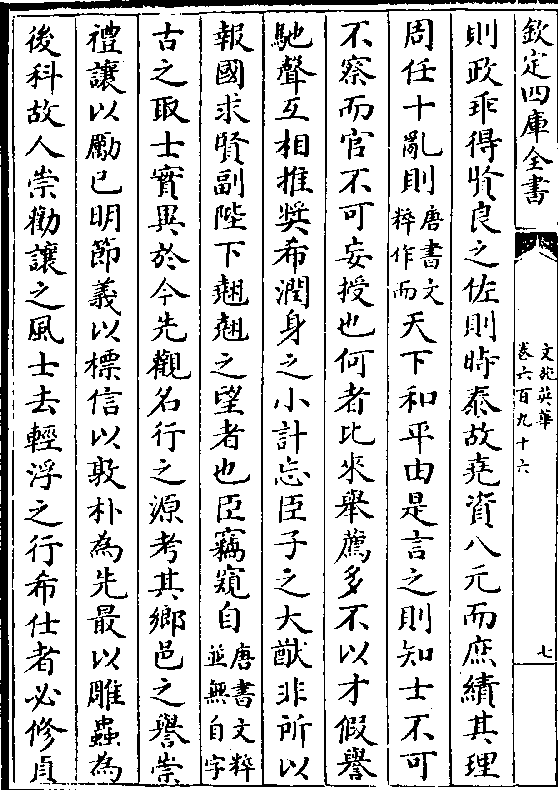 欽定四庫全書
文苑英華
卷六百九十六
七
則政乖得賢良之佐則時泰故堯資八元而庶績其理
周任十亂則唐書文粹作而天下和平由是言之則知士不可
不察而官不可妄授也何者比來舉薦多不以才假譽
馳聲互相推奬希潤身之小計忘臣子之大猷非所以
報國求賢副陛下翹翹之望者也臣竊窺自唐書文粹並無自字
古之取士實異於今先觀名行之源考其鄉邑之譽崇
禮讓以勵已明節義以標信以敦朴為先最以雕蟲為
後科故人崇勸讓之風士去輕浮之行希仕者必修貞